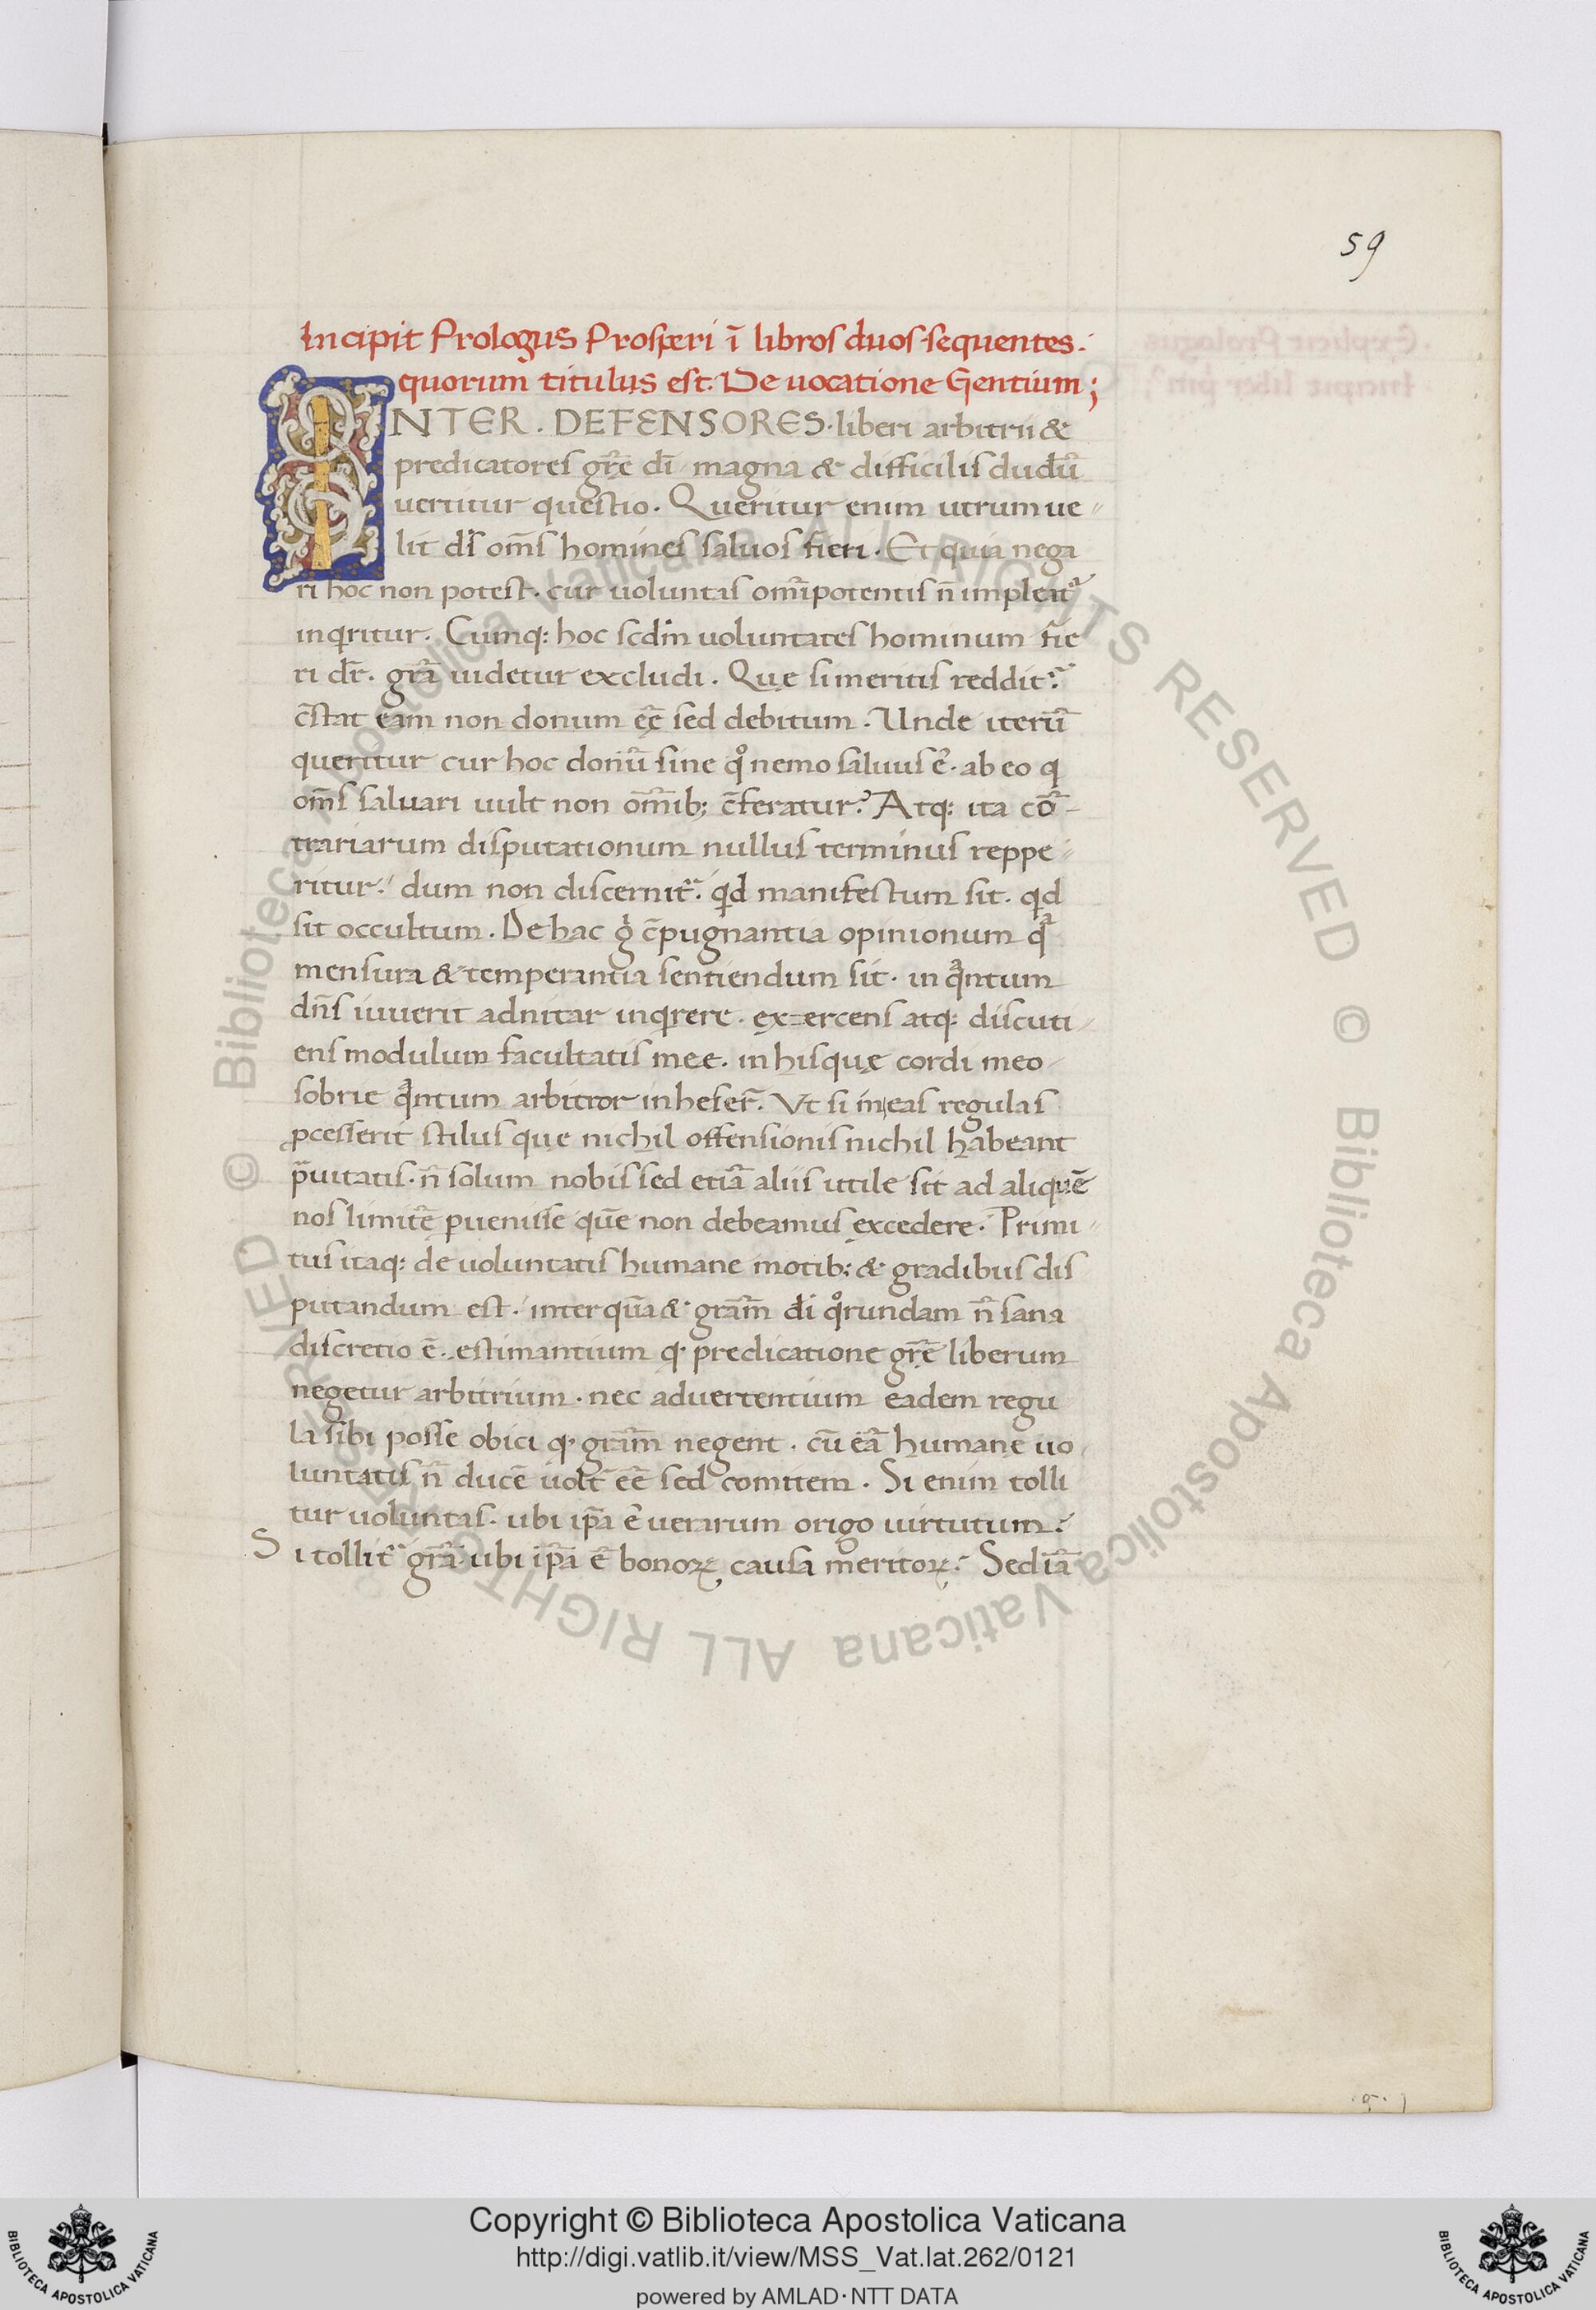 59
Incipit Prologus Prosperi ī libros duos sequentes.
quorum titulus est. De uocatione Gentium;
INTER. DEFENSORES. liberi arbitrii &
predicatores gr̄ę dī magna & difficilis dudū
uertitur questio. Queritur enim utrum ue
lit ds̄ om̄s homines saluos fieri. Et quia nega
ri hoc non potest. cur uoluntas omīpotentis n̄ impleat᷑
inqritur. Cumq: hoc scdm̄ uoluntates hominum fie
ri dr̄. gr̄a uidetur excludi. Quę si meritis reddit᷑.
c̄stat eam non donum eē sed debitum. Unde iterū
queritur cur hoc donū sine qͦ nemo saluus ē. ab eo q
om̄s saluari uult non om̄ib; c̄feratur? Atq: ita cō
trariarum disputationum nullus terminus reppe
ritur. dum non discernit᷑. qd manifestum sit. qd
sit occultum. De hac gͦ c̄pugnantia opinionum qͣ
mensura & temperantia sentiendum sit. in qͣntum
dn̄s iuuerit adnitar inqrere. exercens atq: discuti
ens modulum facultatis meę. in hisquę cordi meo
sobrie qͣntum arbitror inheser̄. Vt si in eas regulas
ꝓcesserit stilus que nichil offensionis nichil habeant
pͣuitatis. n̄ solum nobis sed etiā aliis utile sit ad aliquē
nos limitē ꝑuenisse quē non debeamus excedere. Primi
tus itaq: de uoluntatis humane motib; & gradibus dis
putandum est. inter quā & gram̄ dī qͦrundam n̄ sana
discretio ē. estimantium q predicatione gr̄ę liberum
negetur arbitrium. nec aduertentium eadem regu
la sibi posse obici q gram̄ negent. cū eā humanę uo
luntatis n̄ ducē uolt̄ eē sed comitem. Si enim tolli
tur uoluntas. ubi ip̄a ē uerarum origo uirtutum?
Si tollit᷑ gr̄a ubi ip̄a ē bonoꝝ causa meritoꝝ? Sed iā
© Biblioteca Apostolica Vaticana ALL RIGHTS RESERVED © Biblioteca Apostolica Vaticana ALL RIGHTS RESERVED
Copyright © Biblioteca Apostolica Vaticana
http://digi.vatlib.it/view/MSS_Vat.lat.262/0121
powered by AMLAD·NTT DATA
BIBLIOTECA APOSTOLICA VATICANA
BIBLIOTECA APOSTOLICA VATICANA